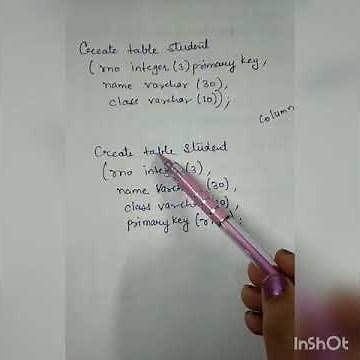 Create table student
(rno integer (3) primary key,
name varchar (30),
class varchar (10));
column
Create table student
(rno integer (3),
name varchar (30),
class varchar
primary key
InShOt